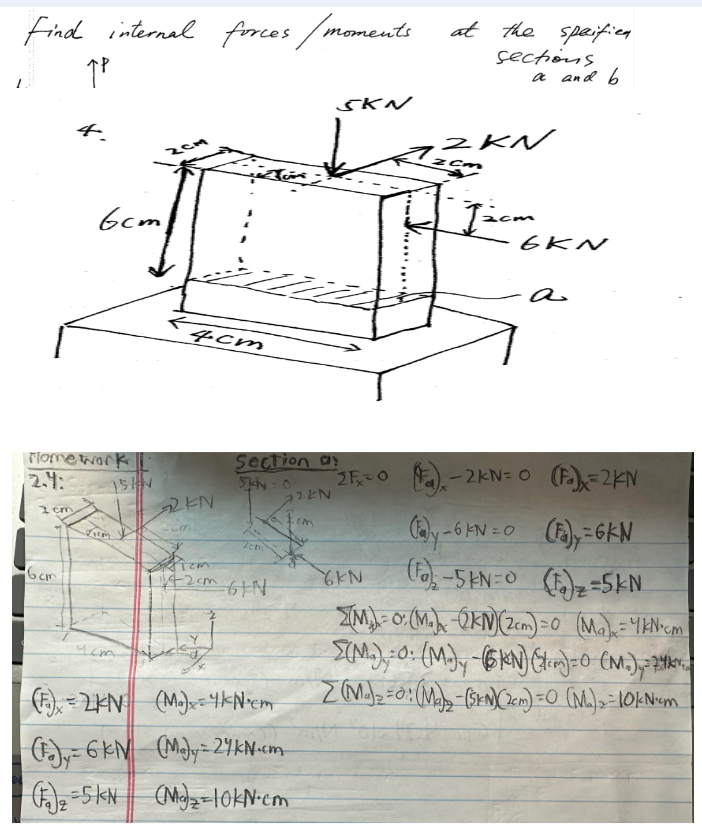 Find internal forces/moments at the specified
sections
a and b
P
4.
5KN
2KN
2cm
2cm
6cm
2cm
6KN
a
4cm
Homework 1
2.4:
Section a:
5KN
2KN
2cm
6cm
1cm
2cm
6KN
4cm
z
y
x
2KN
2cm
6KN
ΣFx=0 (Fa)x-2KN=0 (Fa)x=2KN
(Fa)y-6KN=0 (Fa)y=6KN
(Fa)z-5KN=0 (Fa)z=5KN
Σ(Ma)x=0: (Ma)x-(2KN)(2cm)=0 (Ma)x=4KN·cm
Σ(Ma)y=0: (Ma)y-(6KN)(4cm)=0 (Ma)y=24KN·cm
Σ(Ma)z=0: (Ma)z-(5KN)(2cm)=0 (Ma)z=10KN·cm
(Fa)x=2KN (Ma)x=4KN·cm
(Fa)y=6KN (Ma)y=24KN·cm
(Fa)z=5KN (Ma)z=10KN·cm